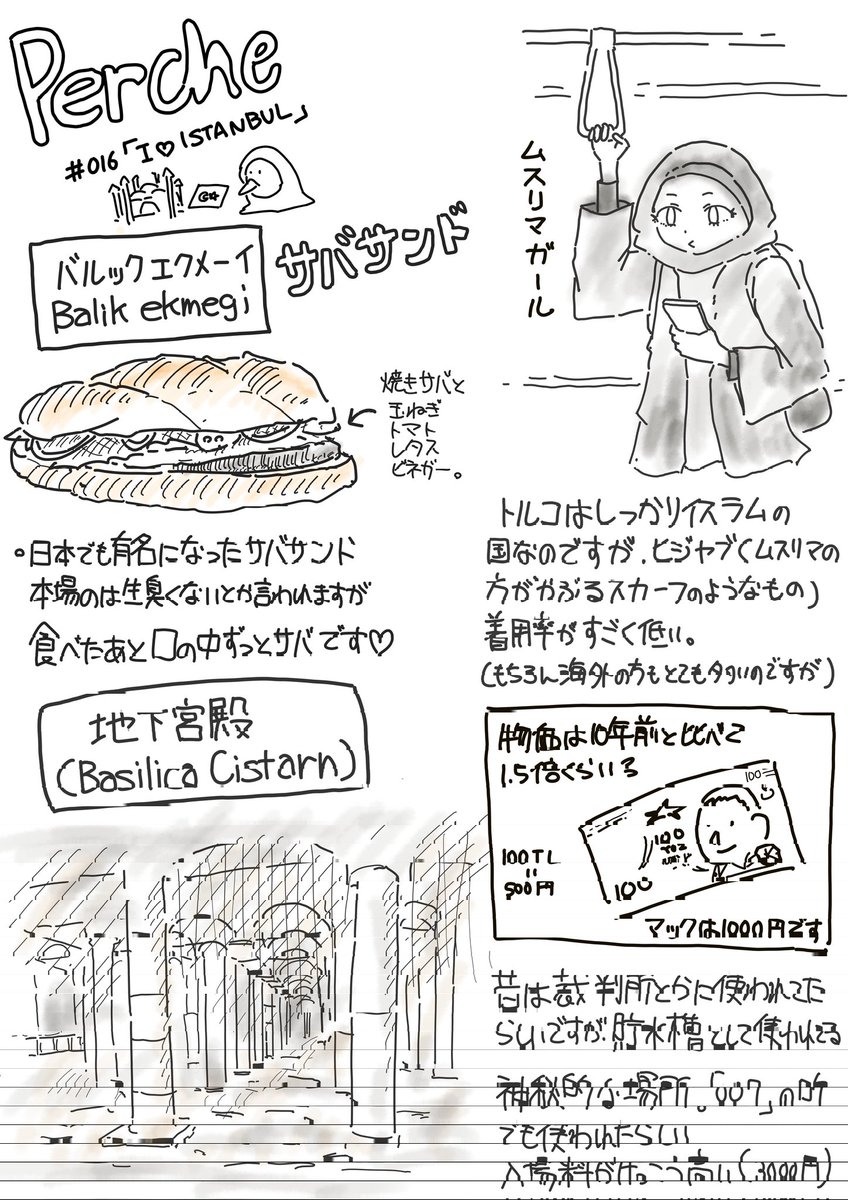 Perche
#016「I♡ISTANBUL」
バルックエクメーイ
Balik ekmegi
サバサンド
焼きサバと
玉ねぎ
トマト
レタス
ビネガー。
。日本でも有名になったサバサンド
本場のは生臭くないとか言われますが
食べたあと口の中ずっとサバです♡
地下宮殿
(Basilica Cistarn)
ムスリマガール
トルコはしっかりイスラムの
国なのですが、ヒジャブ(ムスリマの
方がかぶるスカーフのようなもの)
着用率がすごく低い。
(もちろん海外の方もとても多いのですが)
物価は10年前と比べて
1.5倍ぐらい
100TL
=
500円
100
100
100
マックは1000円です
昔は裁判所とかに使われてた
らしいですが、貯水槽として使われてる
神秘的な場所。「」の所
でも使われたらしい
入場料がけっこう高い(3000円)